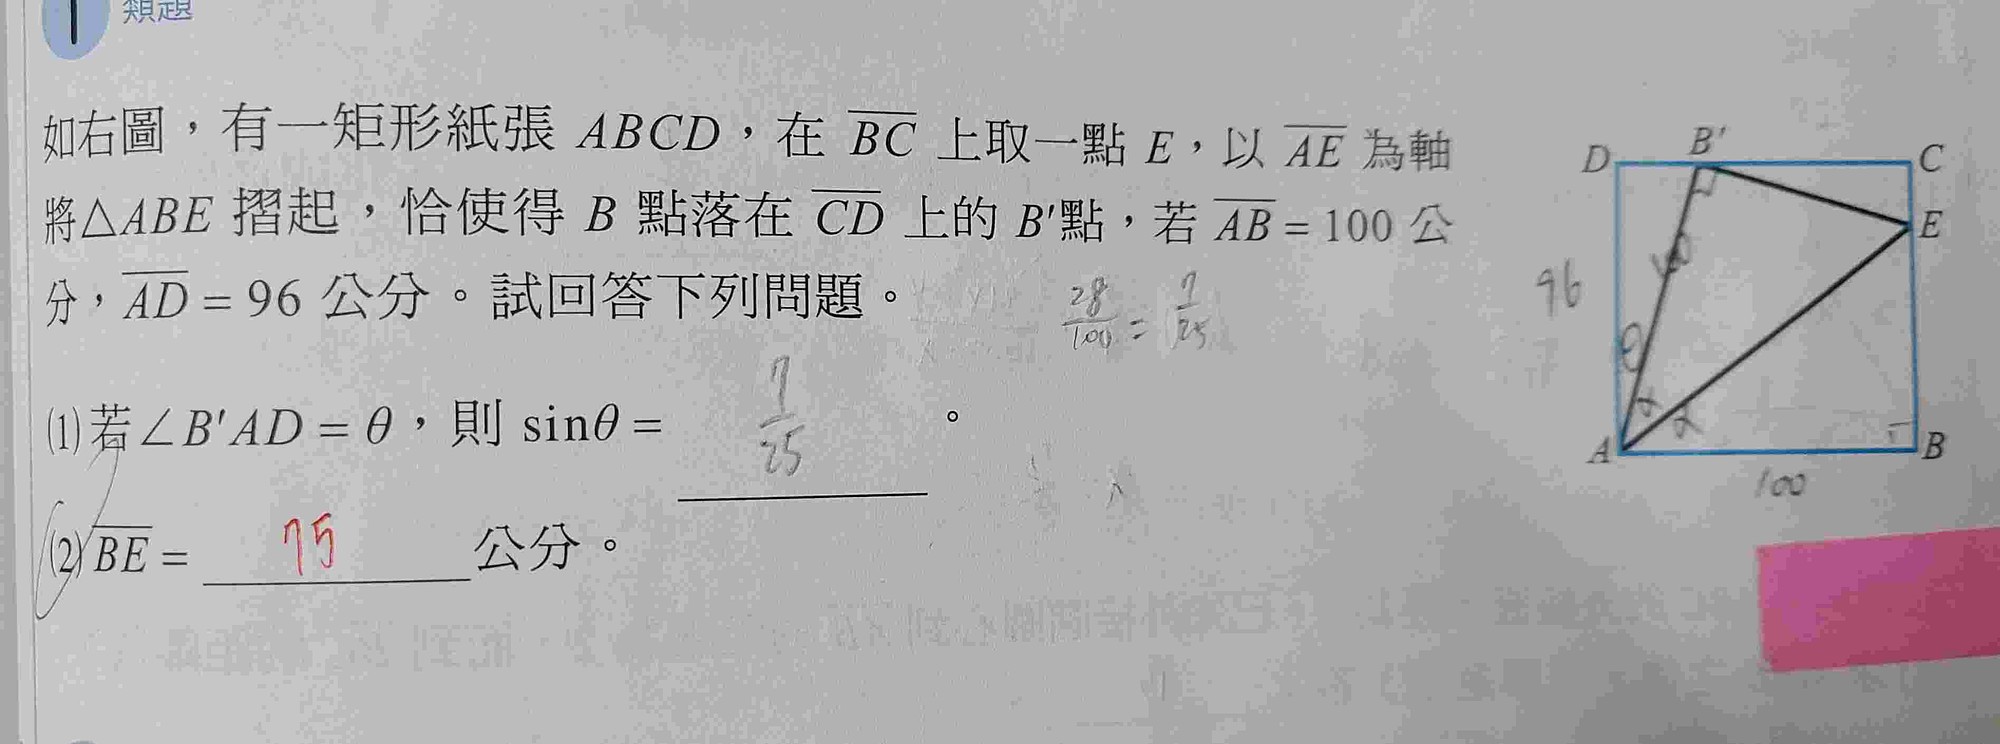 1 類題
如右圖，有一矩形紙張 ABCD，在 BC 上取一點 E，以 AE 為軸
將△ABE 摺起，恰使得 B 點落在 CD 上的 B'點，若 AB = 100 公
分，AD = 96 公分。試回答下列問題。
28/100 = 7/25
(1)若∠B'AD = θ，則 sinθ = 7/25 。
(2)BE = 75 公分。
D B' C
E
96 100
θ
α α
A B
100